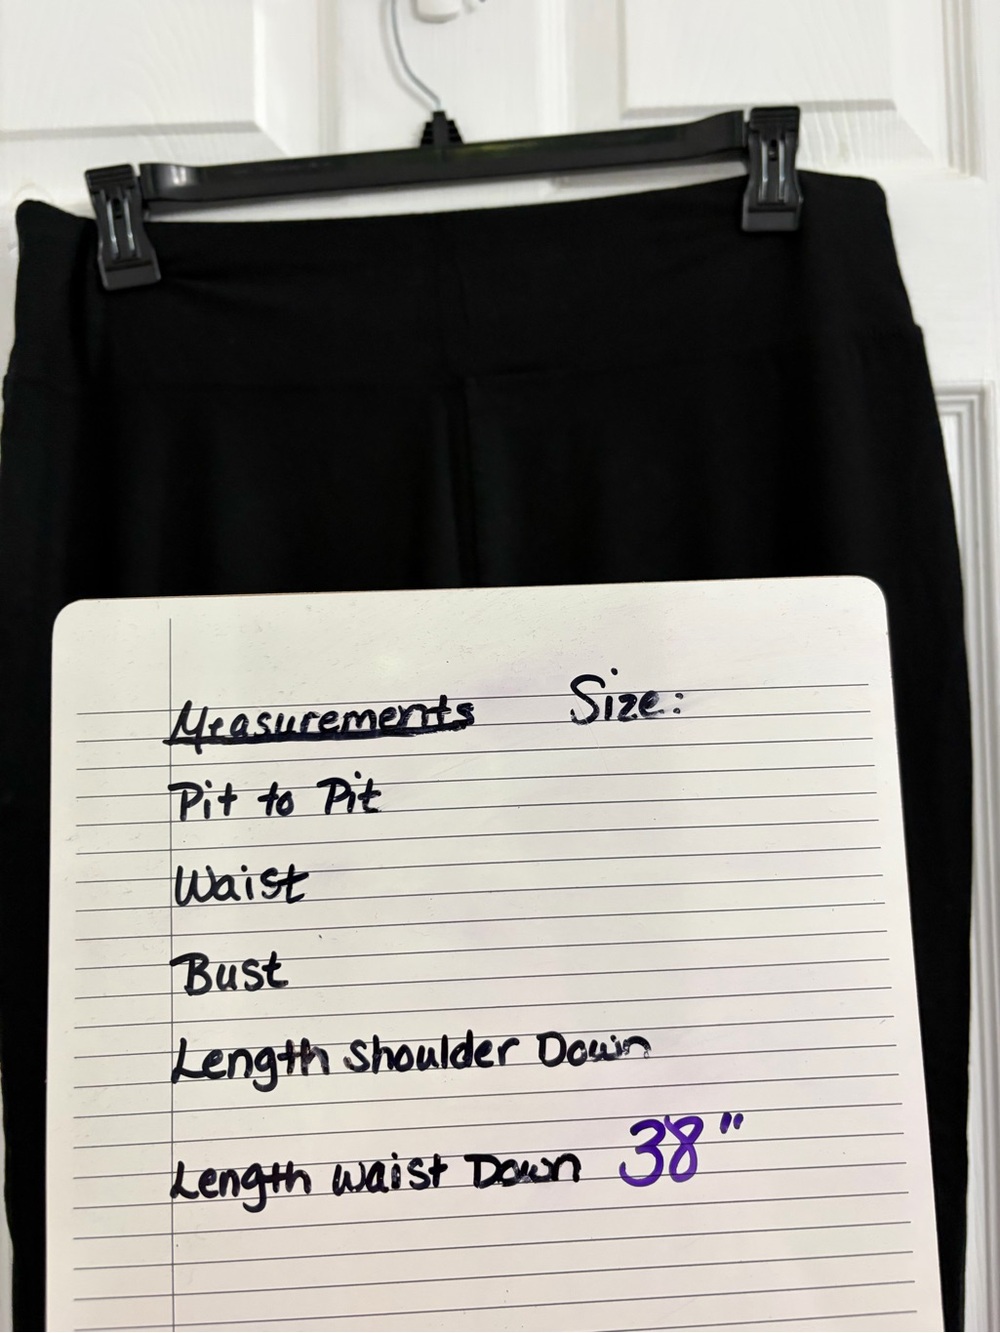 Measurements Size:
Pit to Pit
Waist
Bust
Length Shoulder Down
Length waist Down 38"